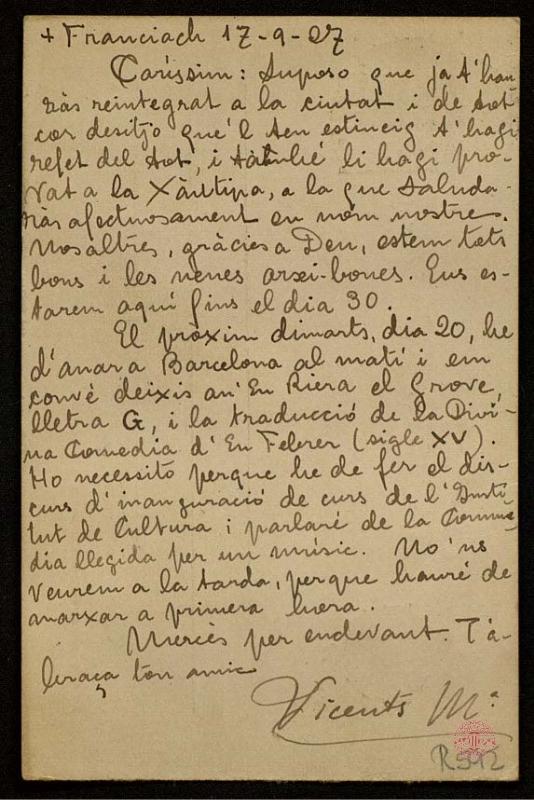 + Franciach 17-9-27
Caríssim: Suposo que ja t'hau
ràs reintegrat a la ciutat i de tot
cor desitjo que'l teu estiueig t'hagi
refet del tot, i també li hagi pro-
vat a la Xàntipa, a la que saluda-
ràs afectuosament en nom nostre.
Nosaltres, gràcies a Deu, estem tots
bons i les nenes arxi-bones. Ens es-
tarem aquí fins el dia 30.
El pròxim dimarts, dia 20, he
d'anar a Barcelona al matí i em
convè deixis an'En Riera el Grove,
lletra G, i la traducció de la Divi-
na Comedia d'En Febrer (sigle XV).
Ho necessito perque he de fer el dis-
curs d'inauguració de curs de l'Insti-
tut de Cultura i parlaré de la Comme-
dia llegida per un músic. No'ns
veurem a la tarda, perque hauré de
marxar a primera hora.
Mercès per endevant. T'a-
braça ton amic
Vicents Mª
R 592